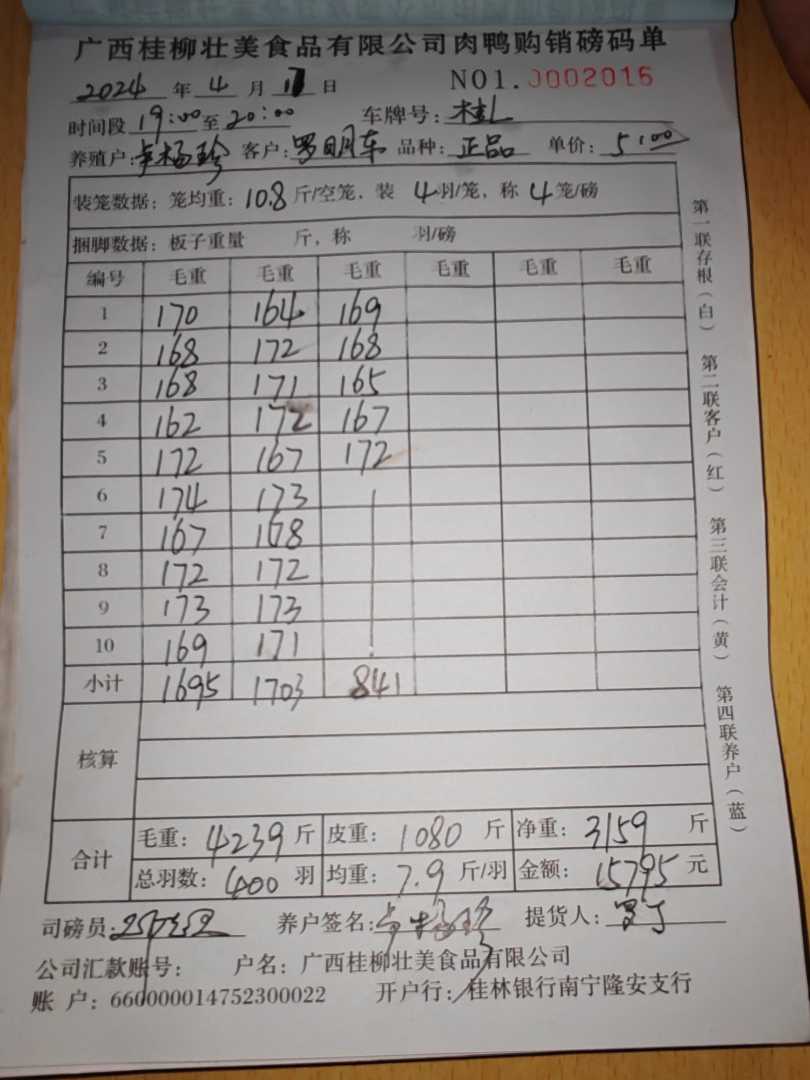 广西桂柳壮美食品有限公司肉鸭购销磅码单
2024 年 4 月 日 NO1. 0002016
时间段 19:00 至 20:00 车牌号:
养殖户: 客户: 罗明车 品种: 正品 单价: 5.00
装笼数据: 笼均重: 10.8 斤/空笼, 装 4 羽/笼, 称 4 笼/磅
捆脚数据: 板子重量 斤, 称 羽/磅
编号 毛重 毛重 毛重 毛重 毛重 毛重
1 170 164 169
2 168 172 168
3 168 171 165
4 162 172 167
5 172 167 172
6 174 173
7 167 168
8 172 172
9 173 173
10 169 171
小计 1695 1703 841
核算
合计 毛重: 4239 斤 皮重: 1080 斤 净重: 3159 斤
总羽数: 400 羽 均重: 7.9 斤/羽 金额: 15795 元
司磅员: 养户签名: 提货人:
公司汇款账号: 户名: 广西桂柳壮美食品有限公司
账 户: 660000014752300022 开户行: 桂林银行南宁隆安支行
第一联存根(白) 第二联客户(红) 第三联会计(黄) 第四联养户(蓝)